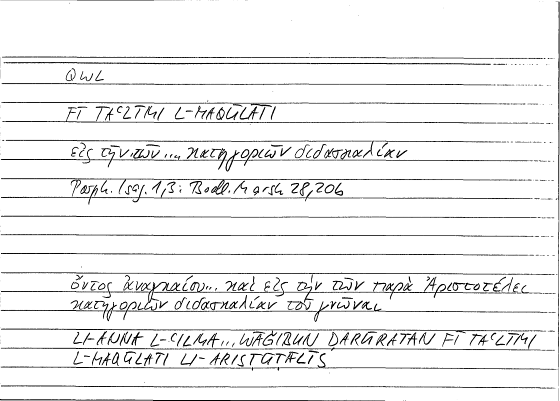 QWL
FĪ TAʿLĪMI L-MAQŪLĀTI
εἰς τὴν τῶν ... κατηγοριῶν διδασκαλίαν
Porph. Isag. 1,3: Bodl. Marsh 28, 20b
ὄντος ἀναγκαίου... καὶ εἰς τὴν τῶν παρὰ Ἀριστοτέλει
κατηγοριῶν διδασκαλίαν τοῦ γνῶναι
LI-ANNA L-ʿILMA... WĀǦIBUN ḌARŪRATAN FĪ TAʿLĪMI
L-MAQŪLĀTI LI-ARISṬŪṬĀLĪS